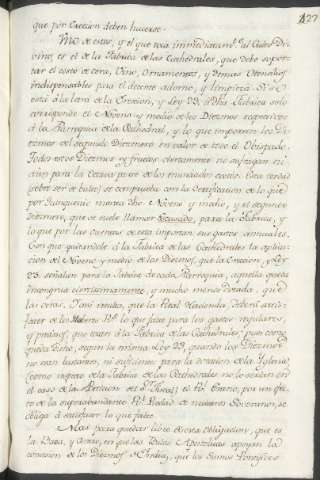 427
que por Ereccion deben hacerse.
Uno de estos, y el que toca immediatamte al Culto Di-
vino, es el de la Fabrica de las Cathedrales, que debe sopor-
tar el costo de cera, Vino, Ornamentos, y demas Utensilios
indispensables para el decente adorno, y limpieza. Si se
está á la letra de la Ereccion, y Ley 23, á dha Fabrica solo
corresponde el Noveno y medio de los Diezmos respectivos
á la Parroquia de la Cathedral, y lo que importen los Di-
ezmos del segundo Diezmero en valor de todo el Obispado.
Todos estos Diezmos, y frutos ciertamente no sufragan ni
aun para la decima parte de los enunciados costos. Esta verdad
se comprueba con la Certificacion de lo que
por Quinquenio monta dho Noveno y medio, y el segundo
Diezmero, que se suele llamar Escusado, para la Fabrica, y
lo que por las cuentas de esta importan sus gastos annuales.
Con que quitandole á la Fabrica de las Cathedrales la aplica-
cion del Noveno y medio de los Diezmos, que la Ereccion, y Ley
23. señalan para la Fabrica de cada Parroquia, aquella queda
incongrua, y mucho menos dotada, que
las otras. Y asi resulta, que la Real Hacienda deberá satis-
facer de los Nobenos Rs lo que falte para los gastos regulares,
y precisos, que traen á la Fabrica de las Cathedrales; pues como
queda dicho, segun la misma Ley 23, quando los Diezmos
no sean bastantes, ni suficientes para la dotacion de la Yglesia,
(como respecto de la Fabrica de las Cathedrales no lo serían en
el caso de la) el Rl Erario, por un efec-
to de la superabundante Rl Piedad de nuestros Soberanos, se
obliga á satisfacer lo que falte.
Mas para quedar libre de esta obligacion, que es
la Basa, y en que las Bulas Apostolicas apoyan la
concesion de los Diezmos de Yndias, que los Sumos Pontifices